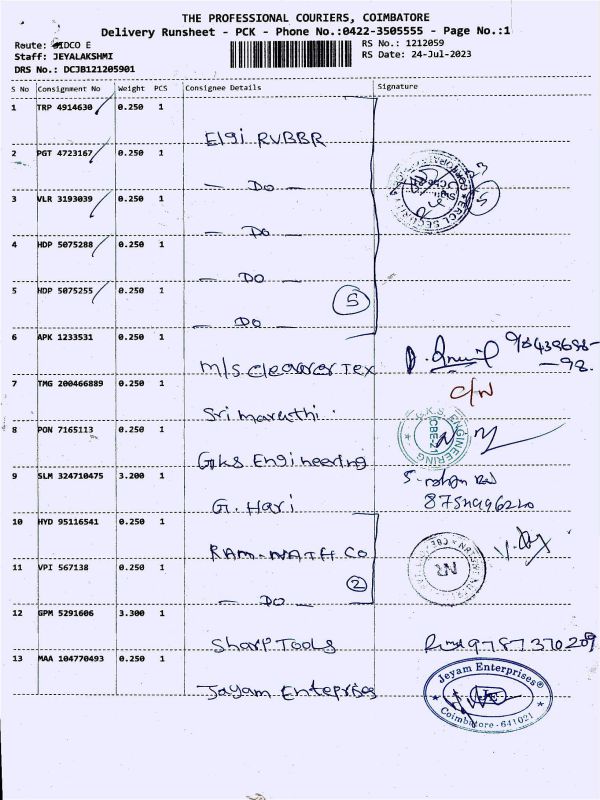 THE PROFESSIONAL COURIERS, COIMBATORE
Delivery Runsheet - PCK - Phone No.:0422-3505555 - Page No.:1
Route: SIDCO E
RS No.: 1212059
Staff: JEYALAKSHMI
RS Date: 24-Jul-2023
DRS No.: DCJB121205901
S No Consignment No Weight PCS Consignee Details Signature
1 TRP 4914630 0.250 1
Elgi RUBBR
2 PGT 4723167 0.250 1
— DO —
3 VLR 3193039 0.250 1
— DO —
4 HDP 5075288 0.250 1
— DO —
5 HDP 5075255 0.250 1
5
— DO —
6 APK 1233531 0.250 1
M/S. Tex
7 TMG 200466889 0.250 1
C/N
Sri maruthi
8 PON 7165113 0.250 1
G.K.S. ENGINEERING CBE-21
Gks Engineering
9 SLM 324710475 3.200 1
G. Hari
10 HYD 95116541 0.250 1
RAM-NATH CO
11 VPI 567138 0.250 1
NR
2
— DO —
12 GPM 5291606 3.300 1
Sharp Tools 9787370209
13 MAA 104770493 0.250 1
Jayam Enteprises
Jeyam Enterprises
Coimbatore - 641021